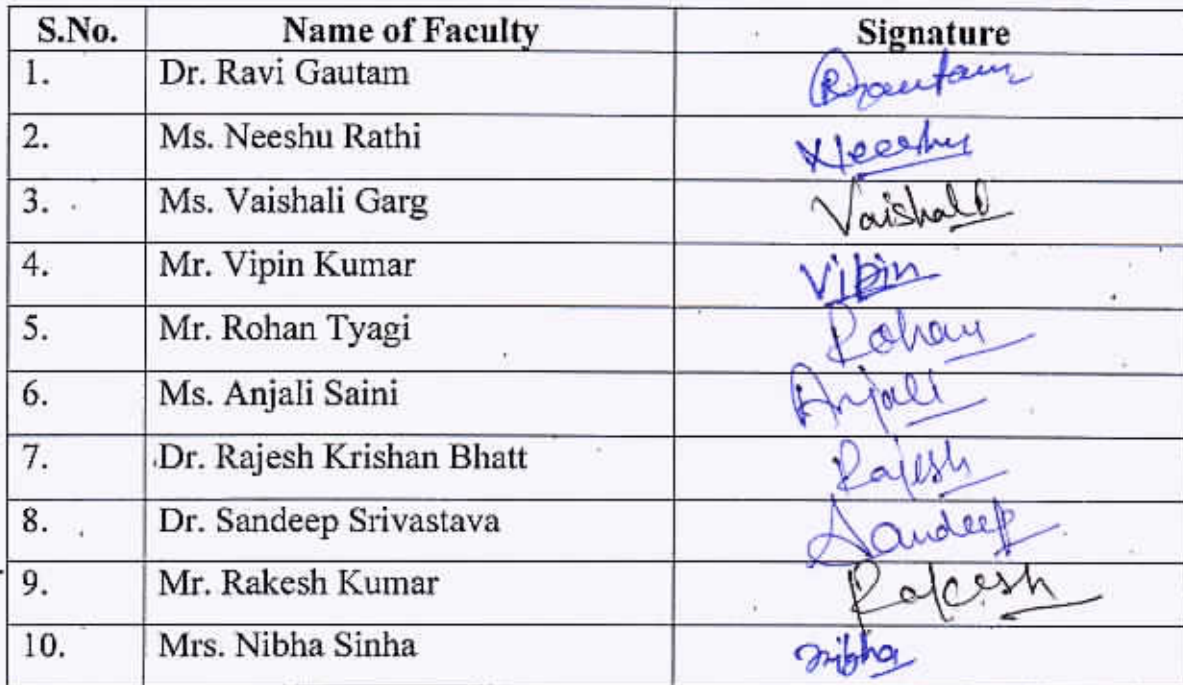 S.No. Name of Faculty Signature
1. Dr. Ravi Gautam RGautam
2. Ms. Neeshu Rathi Neeshu
3. Ms. Vaishali Garg Vaishali
4. Mr. Vipin Kumar Vipin
5. Mr. Rohan Tyagi Rohan
6. Ms. Anjali Saini Anjali
7. Dr. Rajesh Krishan Bhatt Rajesh
8. Dr. Sandeep Srivastava Sandeep
9. Mr. Rakesh Kumar Rakesh
10. Mrs. Nibha Sinha nibha